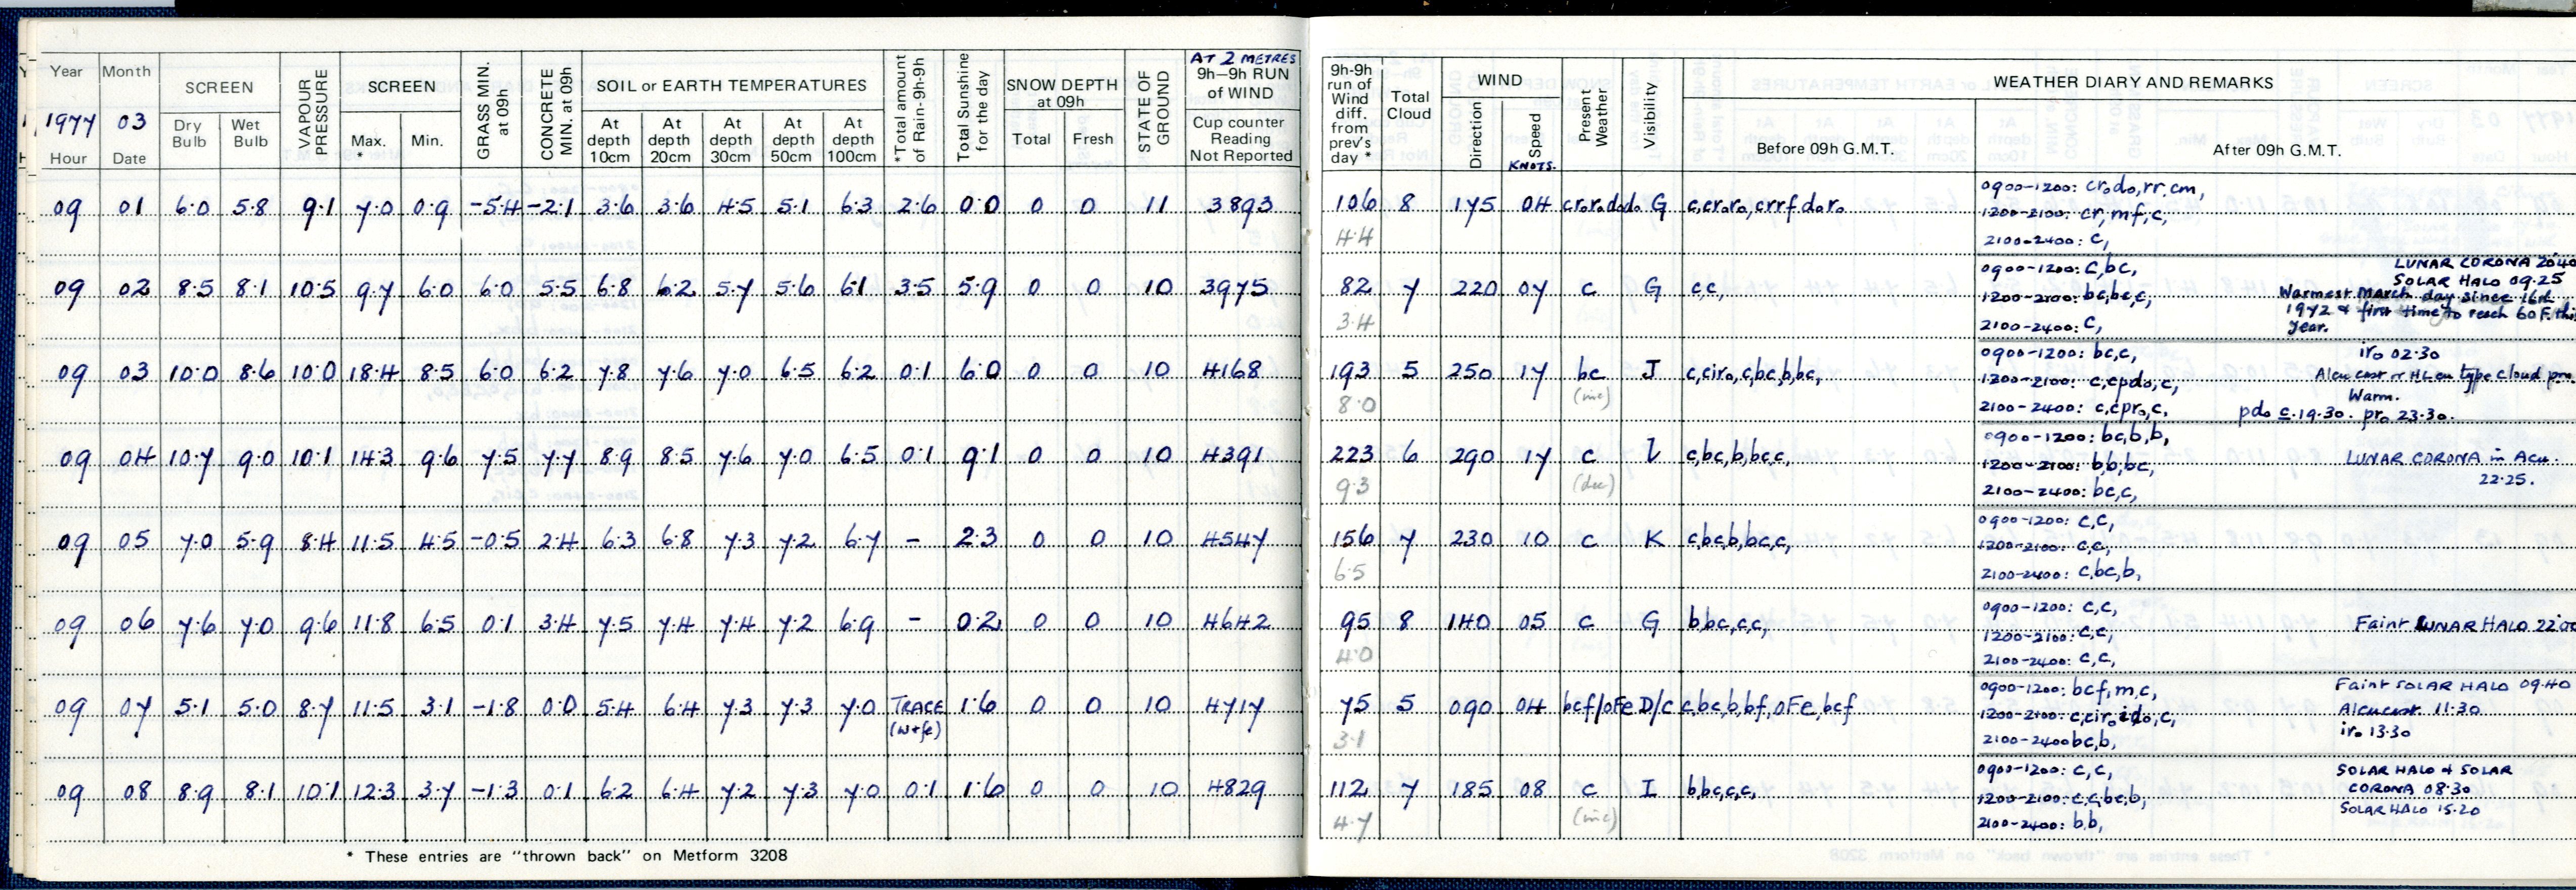 Year Month SCREEN VAPOUR PRESSURE SCREEN GRASS MIN. at 09h CONCRETE MIN. at 09h SOIL or EARTH TEMPERATURES *Total amount of Rain-9h-9h Total Sunshine for the day SNOW DEPTH at 09h STATE OF GROUND AT 2 METRES 9h—9h RUN of WIND
1977 03 Dry Bulb Wet Bulb Max. * Min. At depth 10cm At depth 20cm At depth 30cm At depth 50cm At depth 100cm Total Fresh Cup counter Reading Not Reported
Hour Date
09 01 6.0 5.8 9.1 7.0 0.9 -5.4 -2.1 3.6 3.6 4.5 5.1 6.3 2.6 0.0 0 0 11 3893
09 02 8.5 8.1 10.5 9.7 6.0 6.0 5.5 6.8 6.2 5.7 5.6 6.1 3.5 5.9 0 0 10 3975
09 03 10.0 8.6 10.0 18.4 8.5 6.0 6.2 7.8 7.6 7.0 6.5 6.2 0.1 6.0 0 0 10 4168
09 04 10.7 9.0 10.1 14.3 9.6 7.5 7.7 8.9 8.5 7.6 7.0 6.5 0.1 9.1 0 0 10 4391
09 05 7.0 5.9 8.4 11.5 4.5 -0.5 2.4 6.3 6.8 7.3 7.2 6.7 - 2.3 0 0 10 4547
09 06 7.6 7.0 9.6 11.8 6.5 0.1 3.4 7.5 7.4 7.4 7.2 6.9 - 0.2 0 0 10 4642
09 07 5.1 5.0 8.7 11.5 3.1 -1.8 0.0 5.4 6.4 7.3 7.3 7.0 TRACE 1.6 0 0 10 4717
(w+fe)
09 08 8.9 8.1 10.1 12.3 3.7 -1.3 0.1 6.2 6.4 7.2 7.3 7.0 0.1 1.6 0 0 10 4829
* These entries are "thrown back" on Metform 3208
9h-9h run of Wind diff. from prev's day * Total Cloud WIND Present Weather Visibility WEATHER DIARY AND REMARKS
Direction Speed KNOTS. Before 09h G.M.T. After 09h G.M.T.
106 8 175 04 G c,cr₀r₀,crrf d₀r₀ 0900-1200: cr₀d₀,rr,cm,
4.4 1200-2100: cr,mf,c,
2100-2400: c,
82 7 220 07 c G c,c, 0900-1200: c,bc, LUNAR CORONA 20.40
3.4 SOLAR HALO 09.25
1200-2100: bc,bc,c, Warmest March day since 16th
1972 & first time to reach 60F. this
2100-2400: c, year.
193 5 250 17 bc J c,cir₀,c,bc,b,bc, 0900-1200: bc,c, ir₀ 02.30
8.0 (inc) 1200-2100: c,cpd₀,c, type cloud
Warm.
2100-2400: c,cpr₀,c, pd₀ c.19.30. pr₀ 23.30.
223 6 290 17 c c,bc,b,bc,c, 0900-1200: bc,b,b,
9.3 (dec) 1200-2100: b,b,bc, LUNAR CORONA in Acu.
2100-2400: bc,c, 22.25.
156 7 230 10 c K c,bc,b,bc,c, 0900-1200: c,c,
6.5 1200-2100: c,c,
2100-2400: c,bc,b,
95 8 140 05 c G b,bc,c,c, 0900-1200: c,c,
4.0 1200-2100: c,c, Faint LUNAR HALO 22.00
2100-2400: c,c,
75 5 090 04 bcf/oFe D/c c,bc,b,bf,oFe,bcf 0900-1200: bcf,m,c, Faint SOLAR HALO 09.40
3.1 1200-2100: c,cir₀,id₀,c, Alcucast 11.30
2100-2400 bc,b, ir₀ 13.30
112 7 185 08 c I b,bc,c,c, 0900-1200: c,c, SOLAR HALO & SOLAR
4.7 (inc) CORONA 08.30
1200-2100: c,c,bc,b, SOLAR HALO 15.20
2100-2400: b,b,